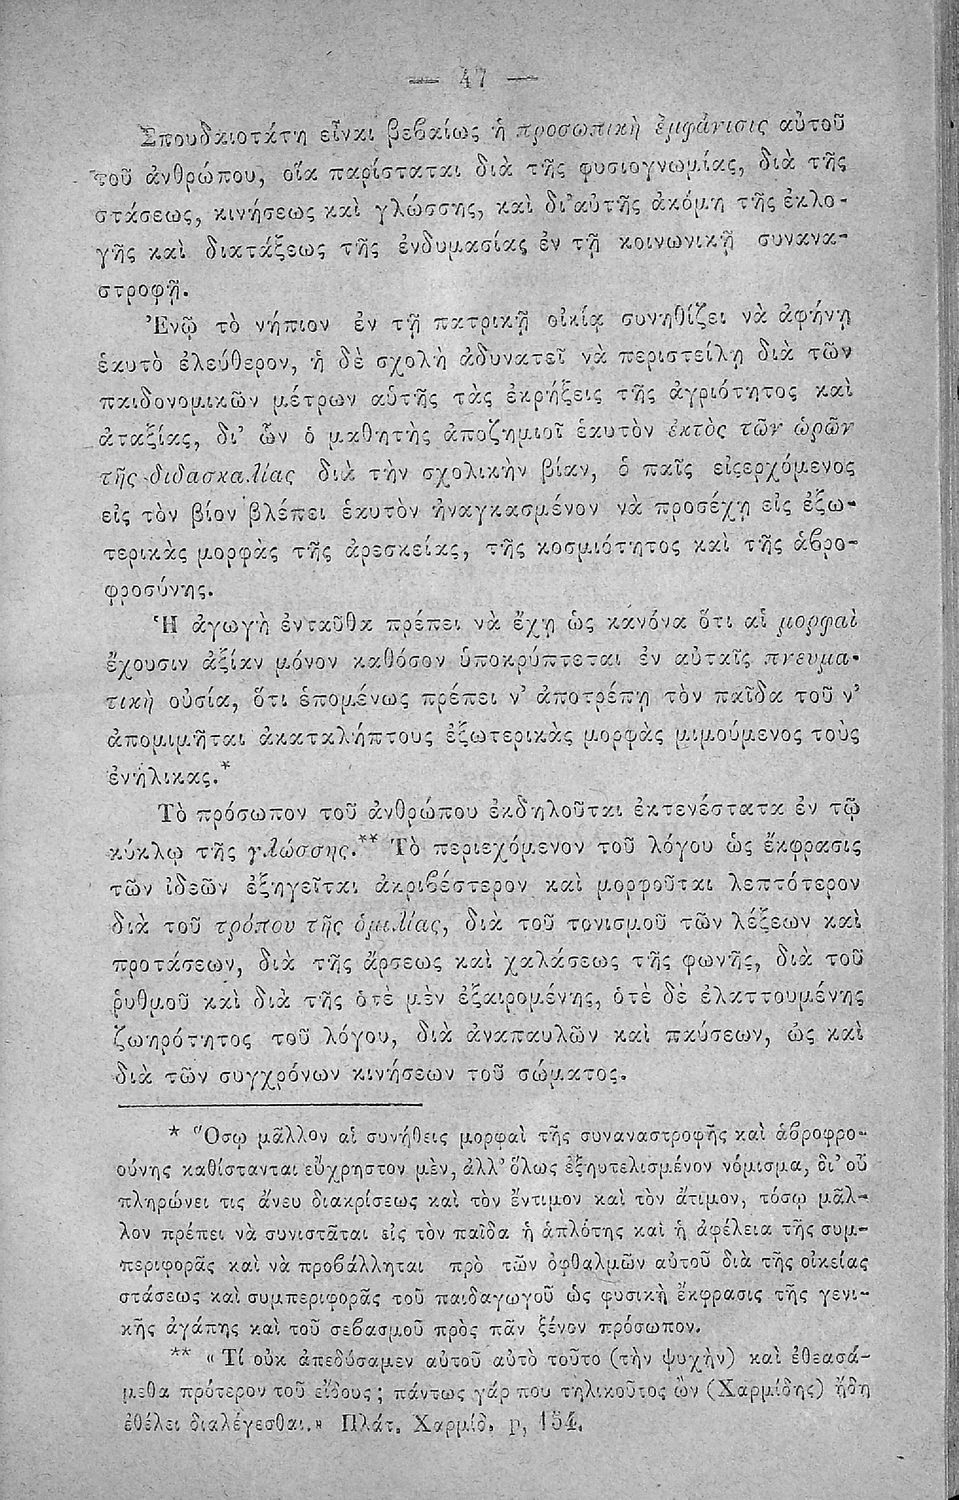 — 47 —
Σπουδαιοτάτη εἶναι βεβαίως ἡ προσωπικὴ ἐμφάνισις αὐτοῦ
τοῦ ἀνθρώπου, οἵα παρίσταται διὰ τῆς φυσιογνωμίας, διὰ τῆς
στάσεως, κινήσεως καὶ γλώσσης, καὶ δι' αὐτῆς ἀκόμη τῆς ἐκλο-
γῆς καὶ διατάξεως τῆς ἐνδυμασίας ἐν τῇ κοινωνικῇ συνανα-
στροφῇ.
Ἐνῷ τὸ νήπιον ἐν τῇ πατρικῇ οἰκίᾳ συνηθίζει νὰ ἀφήνῃ
ἑαυτὸ ἐλεύθερον, ἡ δὲ σχολὴ ἀδυνατεῖ νὰ περιστείλῃ διὰ τῶν
παιδονομικῶν μέτρων αὑτῆς τὰς ἐκρήξεις τῆς ἀγριότητος καὶ
ἀταξίας, δι' ὧν ὁ μαθητὴς ἀποζημιοῖ ἑαυτὸν ἐκτὸς τῶν ὡρῶν
τῆς διδασκαλίας διὰ τὴν σχολικὴν βίαν, ὁ παῖς εἰςερχόμενος
εἰς τὸν βίον βλέπει ἑαυτὸν ἠναγκασμένον νὰ προσέχῃ εἰς ἐξω-
τερικὰς μορφὰς τῆς ἀρεσκείας, τῆς κοσμιότητος καὶ τῆς ἁβρο-
φροσύνης.
Ἡ ἀγωγὴ ἐνταῦθα πρέπει νὰ ἔχῃ ὡς κανόνα ὅτι αἱ μορφαὶ
ἔχουσιν ἀξίαν μόνον καθόσον ὑποκρύπτεται ἐν αὐταῖς πνευμα-
τικὴ οὐσία, ὅτι ἑπομένως πρέπει ν' ἀποτρέπῃ τὸν παῖδα τοῦ ν'
ἀπομιμῆται ἀκαταλήπτους ἐξωτερικὰς μορφὰς μιμούμενος τοὺς
ἐνήλικας.*
Τὸ πρόσωπον τοῦ ἀνθρώπου ἐκδηλοῦται ἐκτενέστατα ἐν τῷ
κύκλῳ τῆς γλώσσης.** Τὸ περιεχόμενον τοῦ λόγου ὡς ἔκφρασις
τῶν ἰδεῶν ἐξηγεῖται ἀκριβέστερον καὶ μορφοῦται λεπτότερον
διὰ τοῦ τρόπου τῆς ὁμιλίας, διὰ τοῦ τονισμοῦ τῶν λέξεων καὶ
προτάσεων, διὰ τῆς ἄρσεως καὶ χαλάσεως τῆς φωνῆς, διὰ τοῦ
ῥυθμοῦ καὶ διὰ τῆς ὁτὲ μὲν ἐξαιρομένης, ὁτὲ δὲ ἐλαττουμένης
ζωηρότητος τοῦ λόγου, διὰ ἀναπαυλῶν καὶ παύσεων, ὡς καὶ
διὰ τῶν συγχρόνων κινήσεων τοῦ σώματος.
* Ὅσῳ μᾶλλον αἱ συνήθεις μορφαὶ τῆς συναναστροφῆς καὶ ἁβροφρο-
σύνης καθίστανται εὔχρηστον μὲν, ἀλλ' ὅλως ἐξηυτελισμένον νόμισμα, δι' οὗ
πληρώνει τις ἄνευ διακρίσεως καὶ τὸν ἔντιμον καὶ τὸν ἄτιμον, τόσῳ μᾶλ-
λον πρέπει νὰ συνιστᾶται εἰς τὸν παῖδα ἡ ἁπλότης καὶ ἡ ἀφέλεια τῆς συμ-
περιφορᾶς καὶ νὰ προβάλληται πρὸ τῶν ὀφθαλμῶν αὐτοῦ διὰ τῆς οἰκείας
στάσεως καὶ συμπεριφορᾶς τοῦ παιδαγωγοῦ ὡς φυσικὴ ἔκφρασις τῆς γενι-
κῆς ἀγάπης καὶ τοῦ σεβασμοῦ πρὸς πᾶν ξένον πρόσωπον.
** «Τί οὐκ ἀπεδύσαμεν αὐτοῦ αὐτὸ τοῦτο (τὴν ψυχὴν) καὶ ἐθεασά-
μεθα πρότερον τοῦ εἴδους; πάντως γάρ που τηλικοῦτος ὢν (Χαρμίδης) ἤδη
ἐθέλει διαλέγεσθαι.» Πλάτ. Χαρμίδ. p, 154.